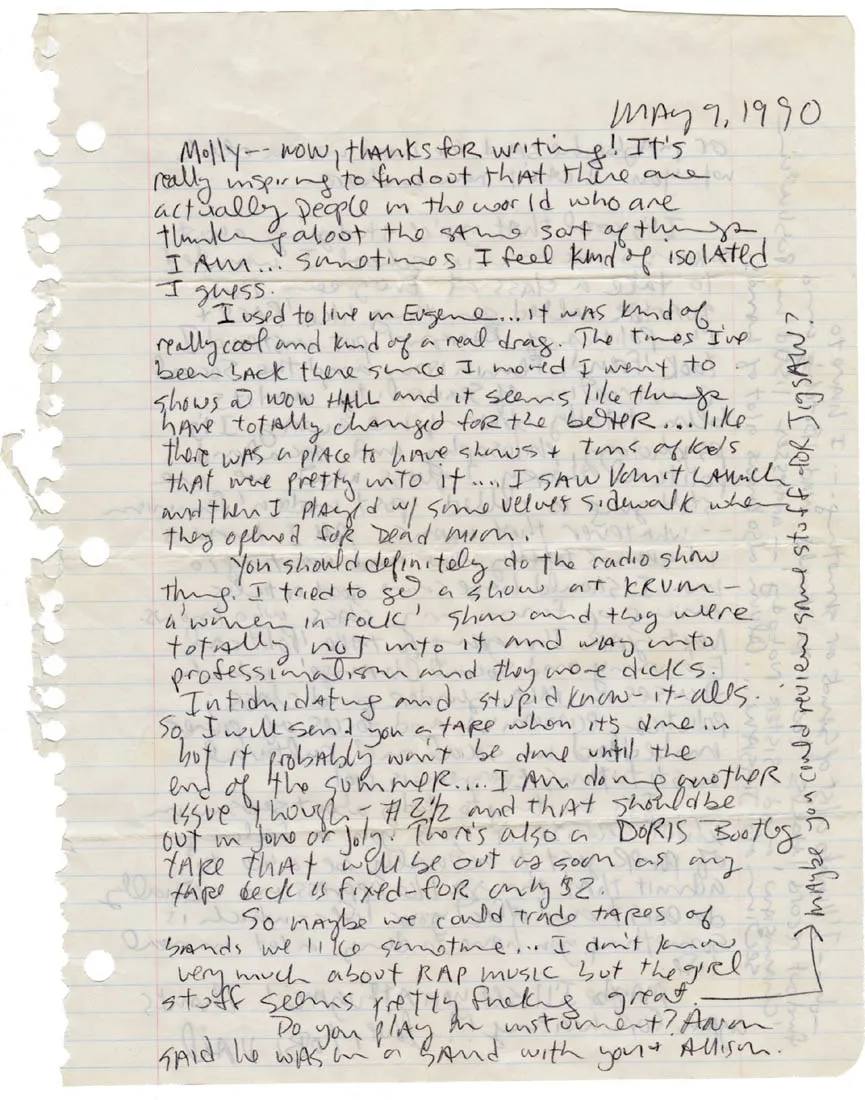 MAY 9, 1990
Molly-- wow, thanks for writing! It's
really inspiring to find out that there are
actually people in the world who are
thinking about the same sort of things
I AM... sometimes I feel kind of isolated
I guess.
I used to live in Eugene... it was kind of
really cool and kind of a real drag. The times I've
been back there since I moved I went to
shows @ WOW HALL and it seems like things
have totally changed for the better... like
there was a place to have shows + tons of kids
that were pretty into it.... I saw Vomit Launch
and then I played w/ some velvet sidewalk when
they opened for Dead moon.
You should definitely do the radio show
thing. I tried to get a show at KRVM –
a 'women in rock' show and they were
totally not into it and way into
professionalism and they were dicks.
Intidmidating and stupid know-it-alls.
So, I will send you a tape when its done in
but it probably won't be done until the
end of the summer.... I AM doing another
issue though – #2½ and that should be
out in June or July. There's also a DORIS Bootleg
tape that will be out as soon as my
tape deck is fixed-for only $2.
So maybe we could trade tapes of
bands we like sometime... I don't know
very much about RAP music but the girl
stuff seems pretty fucking great.
Do you play an instrument? Aaron
said he was in a band with you + Allison.
MAybe you could review some stuff for JigsAW?